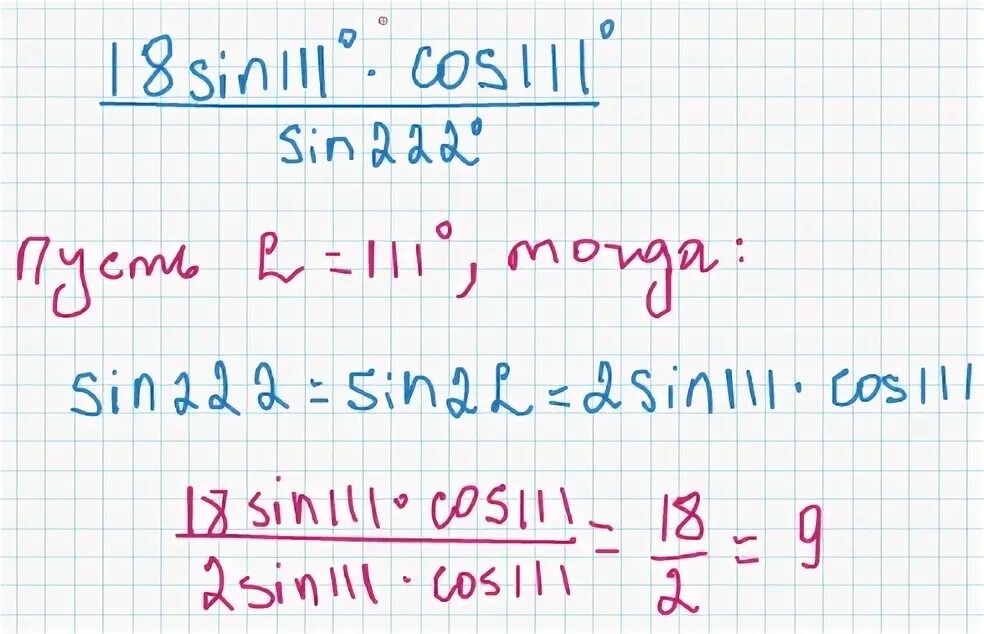 18sin111° · cos111°
sin222°
Пусть L = 111°, тогда:
sin222 = sin2L = 2sin111 · cos111
18sin111 · cos111 = 18 = 9
2sin111 · cos111 2